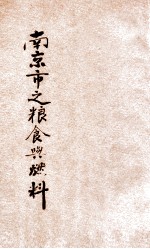 南京市之粮食與燃料